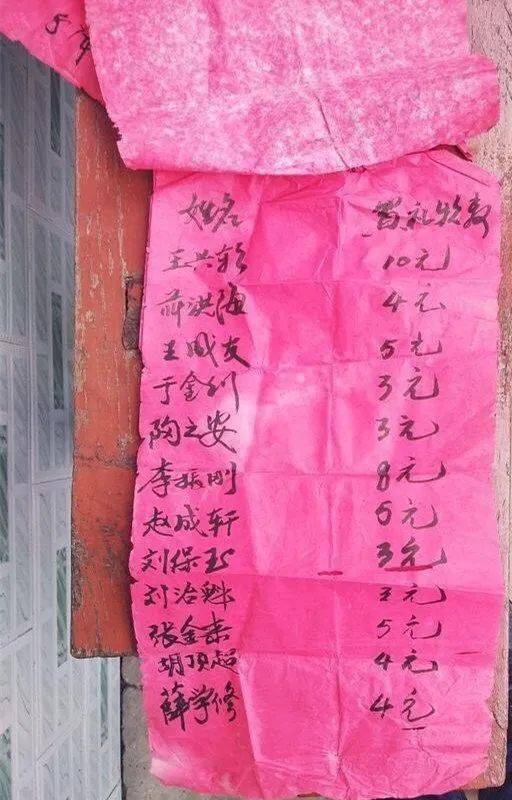 5元
姓名 贺礼钱数
王兴勤 10元
薛洪海 4元
王成友 5元
于金钊 3元
陶之安 3元
李振刚 8元
赵成轩 5元
刘保玉 3元
刘治魁 3元
张金来 5元
胡顶超 4元
薛学修 4元